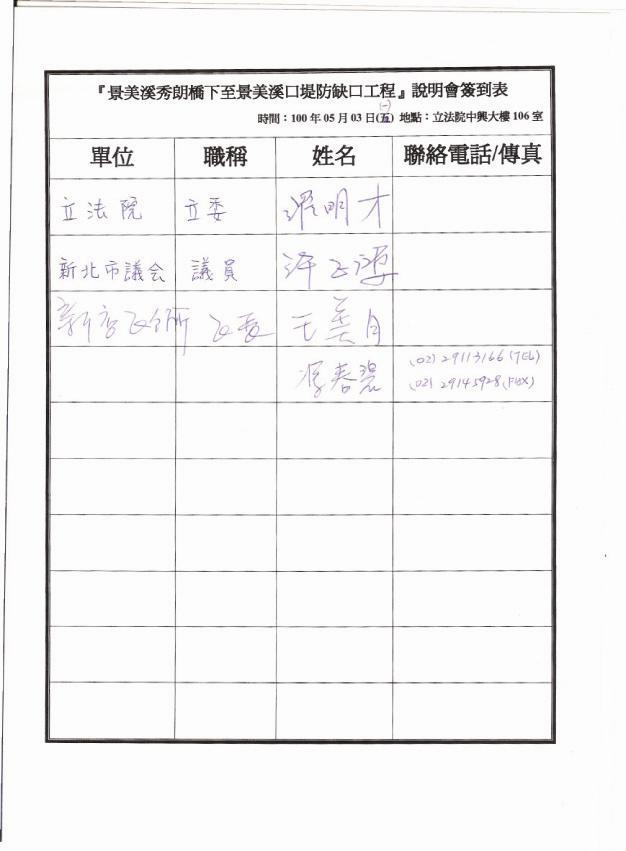 『景美溪秀朗橋下至景美溪口堤防缺口工程』說明會簽到表
時間：100年05月03日(五) 地點：立法院中興大樓106室
(一)
單位 職稱 姓名 聯絡電話/傳真
立法院 立委 羅明才
新北市議会 議員
新店区公所 区長 王美月
春碧 (02) 29113166 (TEL)
(02) 29145928 (FAX)